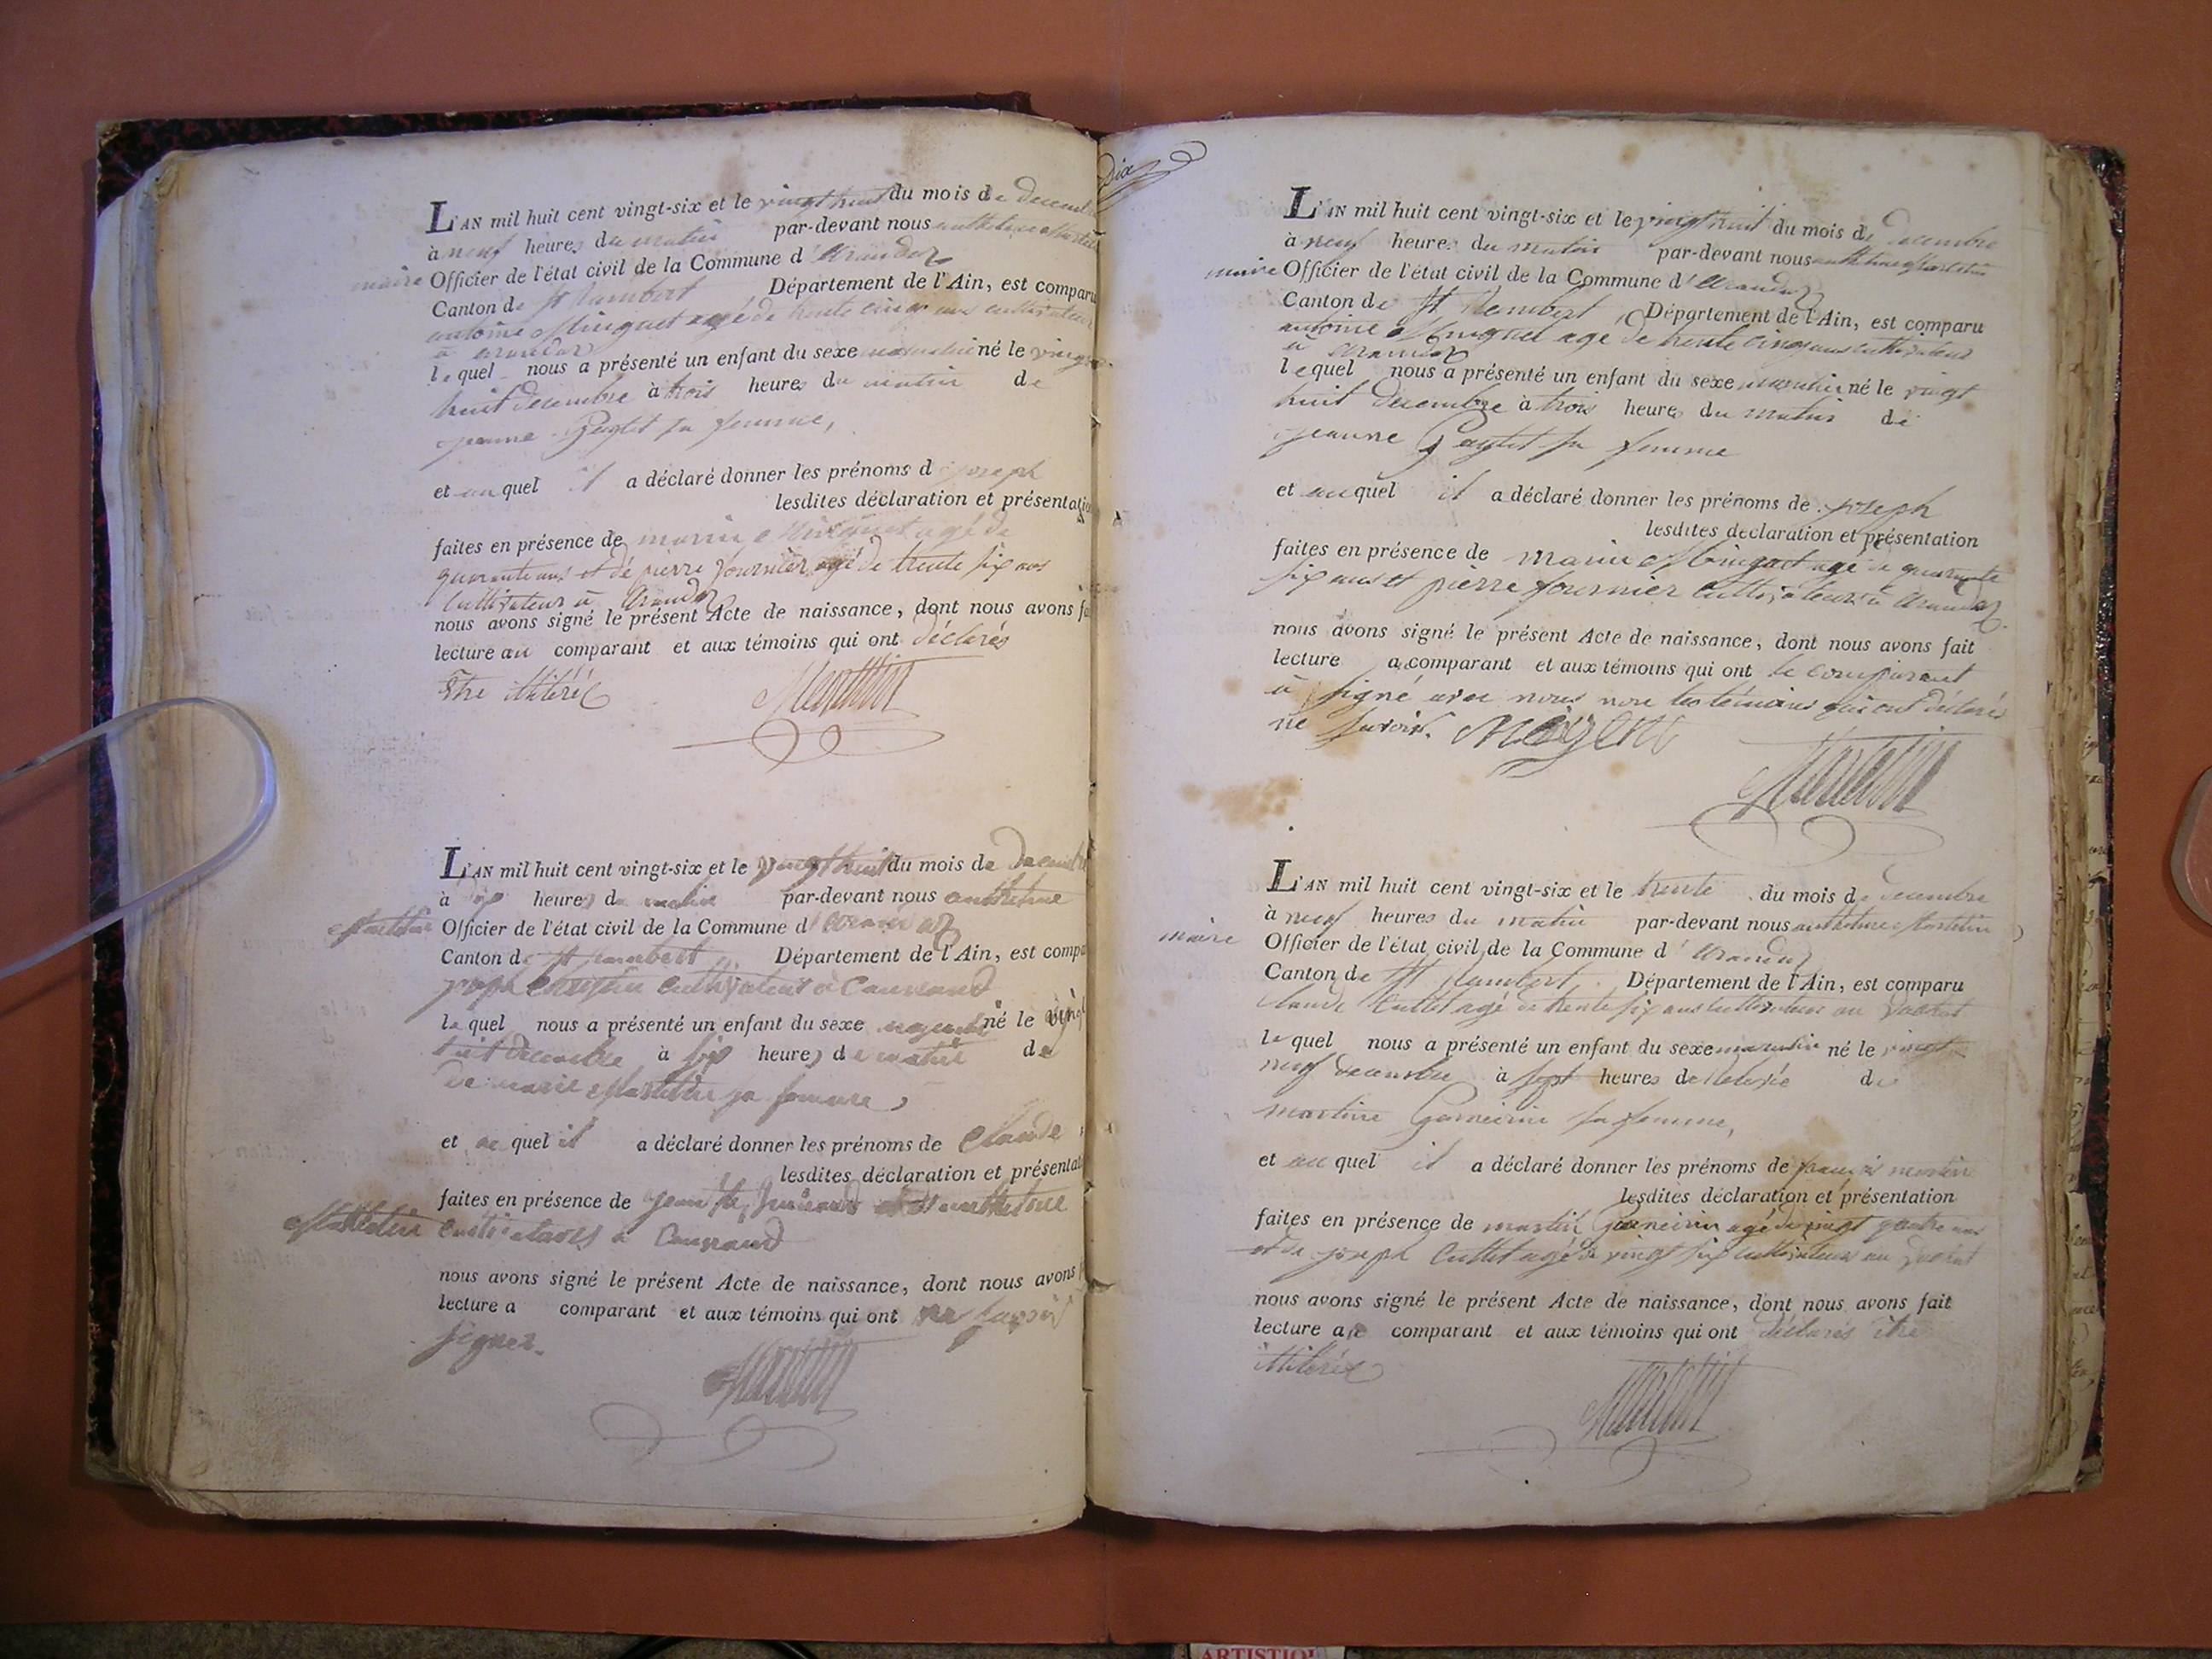 L'AN mil huit cent vingt-six et le vingt huit du mois de decembre
à neuf heures du matin par-devant nous anthelme Martelin
maire Officier de l'état civil de la Commune d'Arandaz
Canton de St Rambert Département de l'Ain, est comparu
antoine Minguet agé de trente cinq ans cultivateur
à arandaz
lequel nous a présenté un enfant du sexe masculin né le vingt
huit decembre à trois heures du matin de
jeanne sa femme,
et auquel il a déclaré donner les prénoms d joseph
lesdites déclaration et présentation
faites en présence de marin Minguet agé de
quarante ans et de pierre fournier agé de trente six ans
cultivateur à Arandaz
nous avons signé le présent Acte de naissance, dont nous avons fa
lecture au comparant et aux témoins qui ont déclarés
être illitérés
Martelin
L'AN mil huit cent vingt-six et le vingt huit du mois de decembre
à dix heures du matin par-devant nous anthelme
Martelin Officier de l'état civil de la Commune d'Arandaz
Canton de St rambert Département de l'Ain, est compa
joseph cultivateur à
lequel nous a présenté un enfant du sexe masculin né le vingt
huit decembre à six heures du matin de
de marie Martelin sa femme,
et au quel il a déclaré donner les prénoms de Claude
lesdites déclaration et présentat
faites en présence de jean et anthelme
Martelin cultivateurs à
nous avons signé le présent Acte de naissance, dont nous avons f
lecture a comparant et aux témoins qui ont ne savoir
signer.
Martelin
Dix
L'AN mil huit cent vingt-six et le vingt huit du mois de decembre
à neuf heures du matin par-devant nous anthelme Martelin
maire Officier de l'état civil de la Commune d'Arandaz
Canton de St Rembert, Département de l'Ain, est comparu
antoine Minguet agé de trente cinq ans cultivateur
à Arandaz
lequel nous a présenté un enfant du sexe masculin né le vingt
huit decembre à trois heures du matin de
jeanne sa femme
et auquel il a déclaré donner les prénoms de joseph
lesdites déclaration et présentation
faites en présence de marin Minguet agé de quarante
six ans et pierre fournier cultivateurs à Arandaz.
nous avons signé le présent Acte de naissance, dont nous avons fait
lecture au comparant et aux témoins qui ont le comparant
a signé avec nous non les témoins qui ont déclarés
ne savoir.
Martelin
L'AN mil huit cent vingt-six et le trente du mois de decembre
à neuf heures du matin par-devant nous anthelme Martelin
maire Officier de l'état civil de la Commune d'Arandaz
Canton de St Rambert Département de l'Ain, est comparu
Claude Cuttet agé de trente six ans cultivateur au
lequel nous a présenté un enfant du sexe masculin né le vingt
neuf decembre à sept heures de de
martine Garneirin sa femme,
et au quel il a déclaré donner les prénoms de françois martin
lesdites déclaration et présentation
faites en présence de martin Garneirin agé de vingt quatre ans
et de joseph Cuttet agé de vingt six cultivateurs au
nous avons signé le présent Acte de naissance, dont nous avons fait
lecture au comparant et aux témoins qui ont déclarés être
illitérés
Martelin